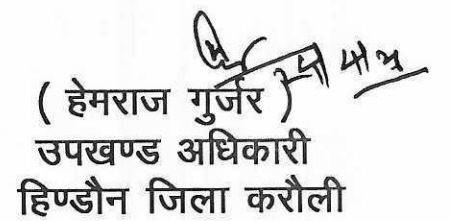 ( हेमराज गुर्जर )
उपखण्ड अधिकारी
हिण्डौन जिला करौली